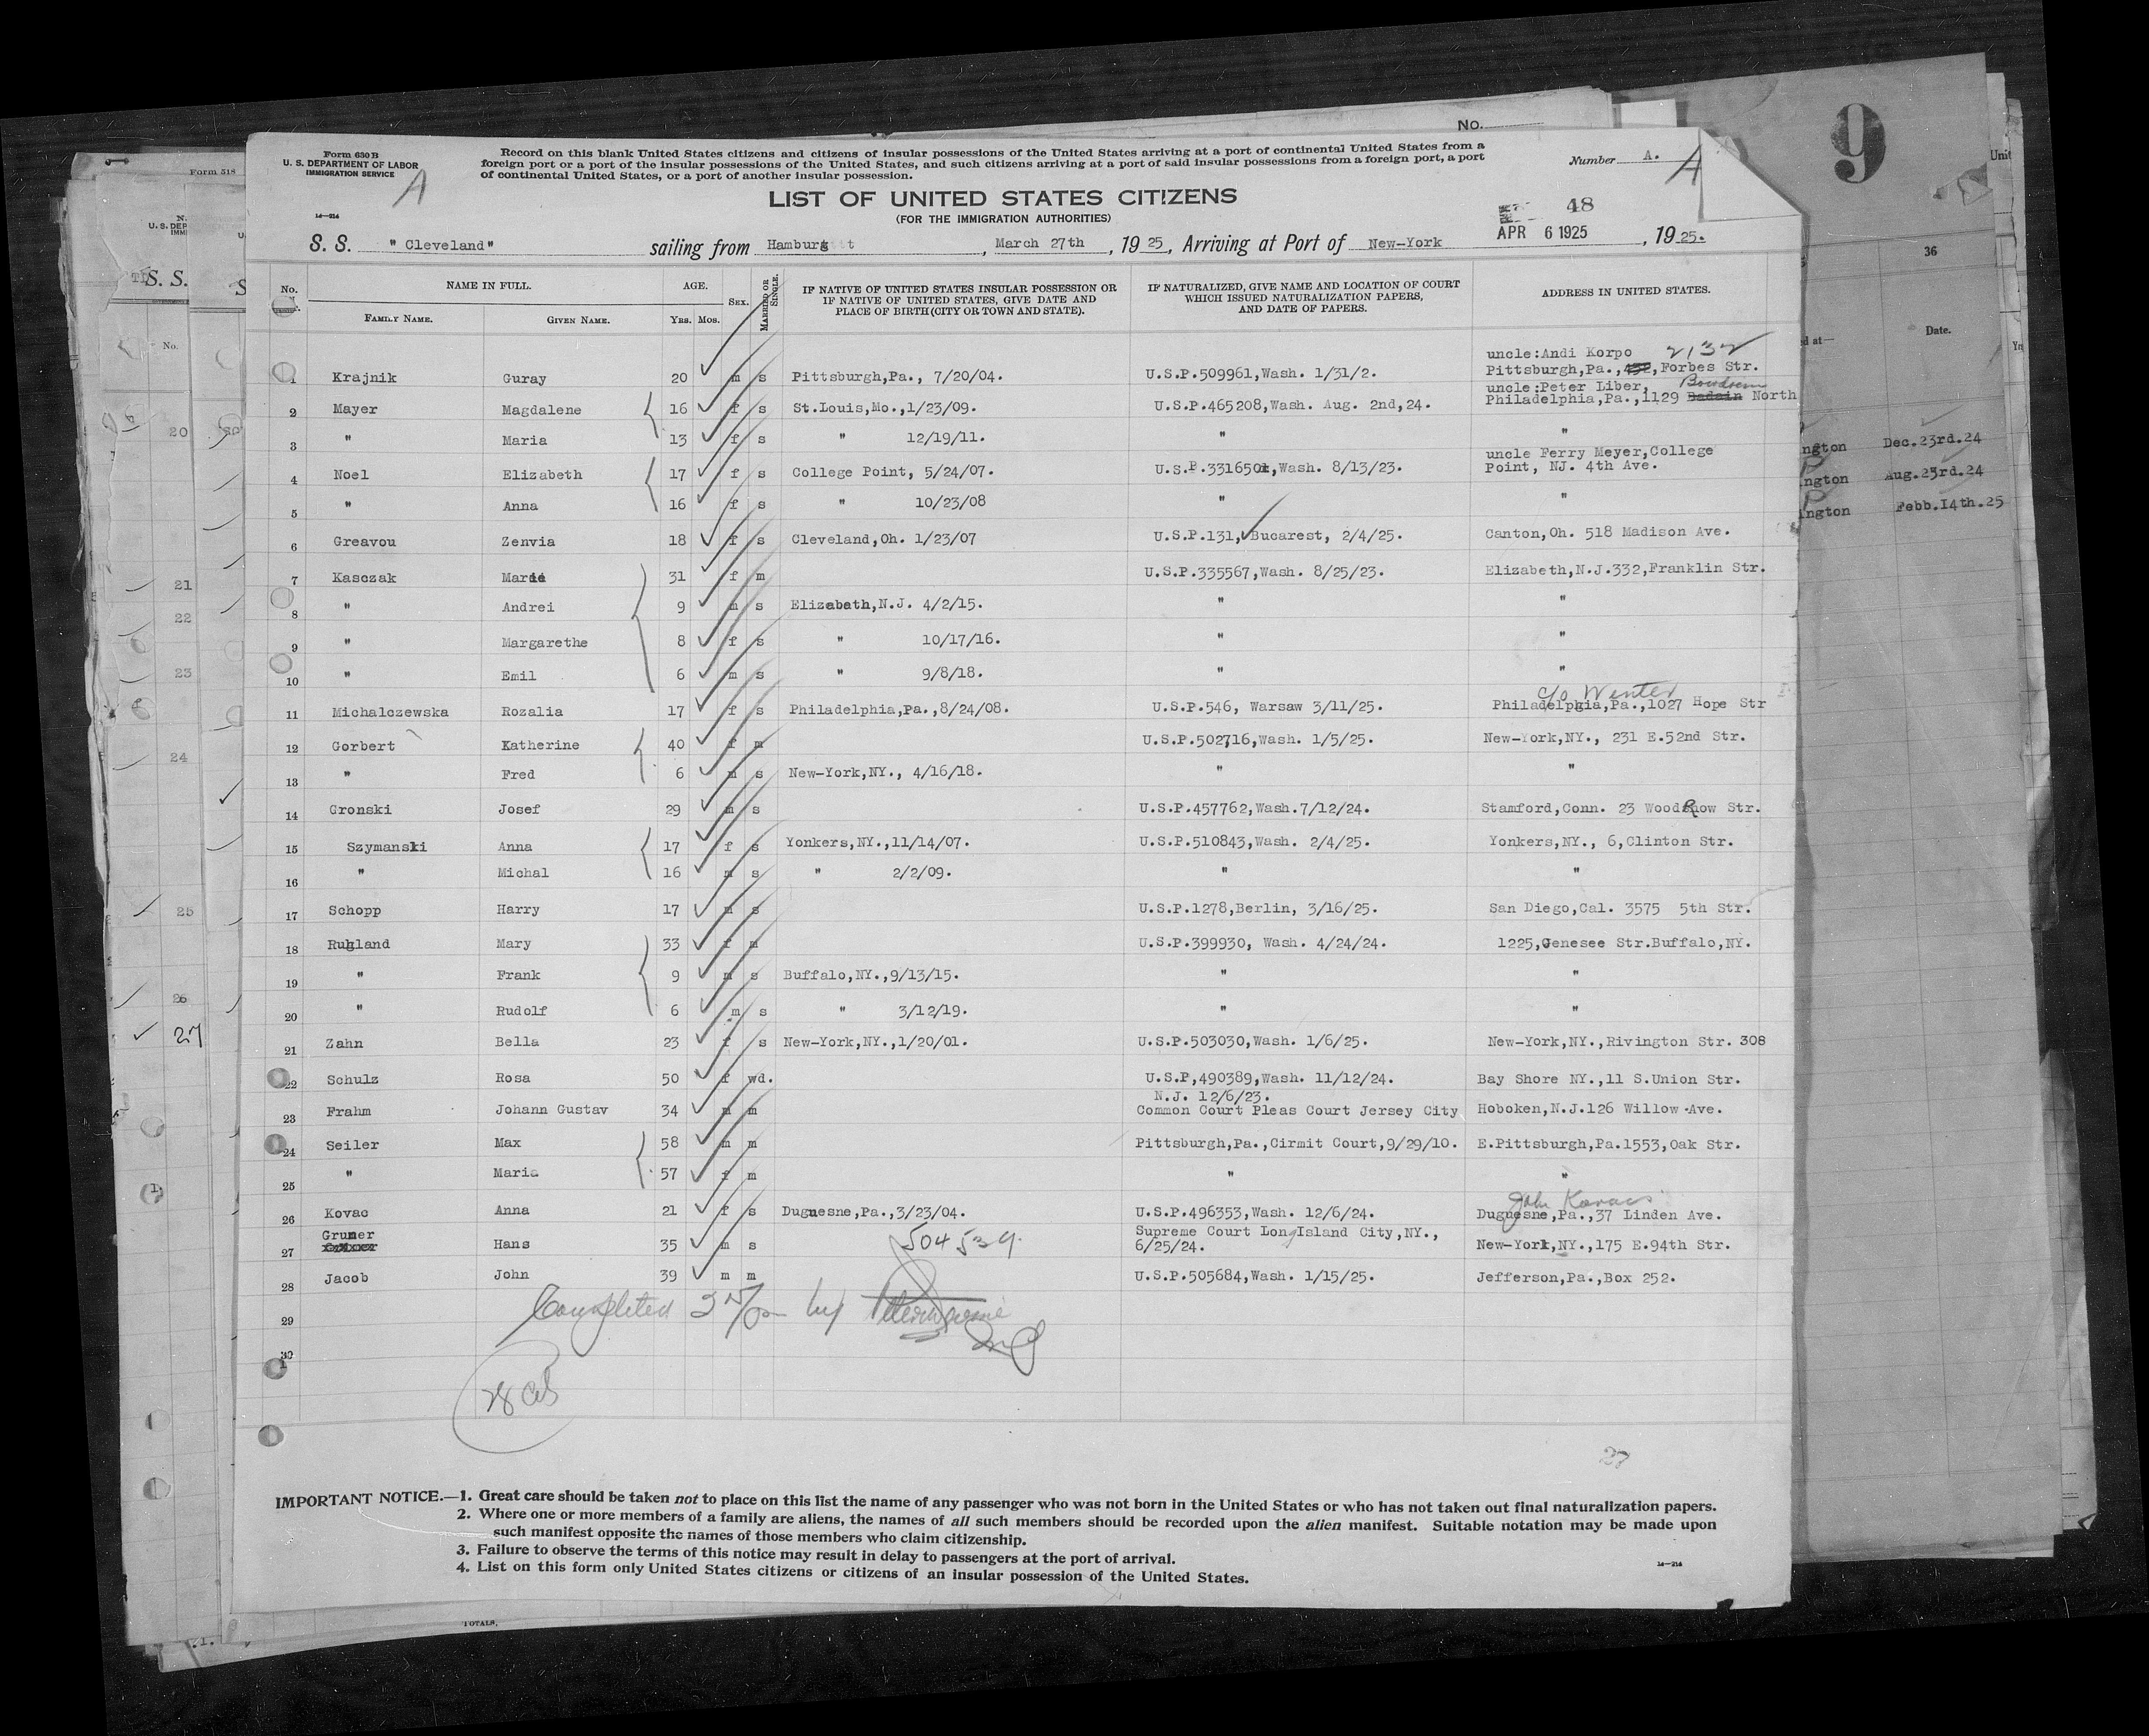 No.
9
Form 518
Form 630 B
U. S. DEPARTMENT OF LABOR
IMMIGRATION SERVICE
A
Record on this blank United States citizens and citizens of insular possessions of the United States arriving at a port of continental United States from a
foreign port or a port of the insular possessions of the United States, and such citizens arriving at a port of said insular possessions from a foreign port, a port
of continental United States, or a port of another insular possession.
Number A. A
LIST OF UNITED STATES CITIZENS
(FOR THE IMMIGRATION AUTHORITIES)
14—214
48
APR 6 1925
S. S. " Cleveland" sailing from Hamburg , March 27th , 19 25 , Arriving at Port of New-York , 19 25.
No. NAME IN FULL. AGE. SEX. MARRIED OR SINGLE. IF NATIVE OF UNITED STATES INSULAR POSSESSION OR IF NATIVE OF UNITED STATES, GIVE DATE AND PLACE OF BIRTH (CITY OR TOWN AND STATE). IF NATURALIZED, GIVE NAME AND LOCATION OF COURT WHICH ISSUED NATURALIZATION PAPERS, AND DATE OF PAPERS. ADDRESS IN UNITED STATES.
FAMILY NAME. GIVEN NAME. YRS. MOS.
uncle:Andi Korpo 2132
1 Krajnik Guray 20 m s Pittsburgh,Pa., 7/20/04. U.S.P.509961,Wash. 1/31/2. Pittsburgh,Pa., 432, Forbes Str.
uncle:Peter Liber, Bowdoin
2 Mayer Magdalene 16 f s St.Louis,Mo.,1/23/09. U.S.P.465208,Wash. Aug. 2nd,24. Philadelphia,Pa.,1129 Badain North
3 " Maria 13 f s " 12/19/11. " "
uncle Ferry Meyer,College
4 Noel Elizabeth 17 f s College Point, 5/24/07. U.S.P.331650,Wash. 8/13/23. Point, NJ. 4th Ave.
5 " Anna 16 f s " 10/23/08 " "
6 Greavou Zenvia 18 f s Cleveland,Oh. 1/23/07 U.S.P.131, Bucarest, 2/4/25. Canton,Oh. 518 Madison Ave.
7 Kasczak Marie 31 f m U.S.P.335567,Wash. 8/25/23. Elizabeth,N.J.332,Franklin Str.
8 " Andrei 9 m s Elizabath,N.J. 4/2/15. " "
9 " Margarethe 8 f s " 10/17/16. " "
10 " Emil 6 m s " 9/8/18. " "
c/o Wenter
11 Michalczewska Rozalia 17 f s Philadelphia,Pa.,8/24/08. U.S.P.546, Warsaw 3/11/25. Philadelphia,Pa.,1027 Hope Str
12 Gorbert Katherine 40 f m U.S.P.502716,Wash. 1/5/25. New-York,NY., 231 E.52nd Str.
13 " Fred 6 m s New-York,NY., 4/16/18. " "
14 Gronski Josef 29 m s U.S.P.457762,Wash.7/12/24. Stamford,Conn. 23 WoodRow Str.
15 Szymanski Anna 17 f s Yonkers,NY.,11/14/07. U.S.P.510843,Wash. 2/4/25. Yonkers,NY., 6,Clinton Str.
16 " Michal 16 m s " 2/2/09. " "
17 Schopp Harry 17 m s U.S.P.1278,Berlin, 3/16/25. San Diego,Cal. 3575 5th Str.
18 Ruhland Mary 33 f m U.S.P.399930, Wash. 4/24/24. 1225,Genesee Str.Buffalo,NY.
19 " Frank 9 m s Buffalo,NY.,9/13/15. " "
20 " Rudolf 6 m s " 3/12/19. " "
21 Zahn Bella 23 f s New-York,NY.,1/20/01. U.S.P.503030,Wash. 1/6/25. New-York,NY.,Rivington Str. 308
22 Schulz Rosa 50 f wd. U.S.P,490389,Wash. 11/12/24. Bay Shore NY.,11 S.Union Str.
N.J. 12/6/23.
23 Frahm Johann Gustav 34 m m Common Court Pleas Court Jersey City Hoboken,N.J.126 Willow Ave.
24 Seiler Max 58 m m Pittsburgh,Pa.,Cirmit Court,9/29/10. E.Pittsburgh,Pa.1553,Oak Str.
25 " Maria 57 f m " "
John Kovacs
26 Kovac Anna 21 f s Dugnesne,Pa.,3/23/04. U.S.P.496353,Wash. 12/6/24. Dugnesne,Pa.,37 Linden Ave.
Gruner Supreme Court Long Island City,NY.,
27 Hans 35 m s 504539. 6/25/24. New-York,NY.,175 E.94th Str.
28 Jacob John 39 m m U.S.P.505684,Wash. 1/15/25. Jefferson,Pa.,Box 252.
Completed by
29
30
28
27
IMPORTANT NOTICE.—1. Great care should be taken not to place on this list the name of any passenger who was not born in the United States or who has not taken out final naturalization papers.
2. Where one or more members of a family are aliens, the names of all such members should be recorded upon the alien manifest. Suitable notation may be made upon
such manifest opposite the names of those members who claim citizenship.
3. Failure to observe the terms of this notice may result in delay to passengers at the port of arrival.
4. List on this form only United States citizens or citizens of an insular possession of the United States.
14—214
TOTALS,
S. S.
No.
20
21
22
23
24
25
26
27
36
Date.
ngton Dec.23rd.24
ngton Aug.23rd.24
ington Febb.14th.25